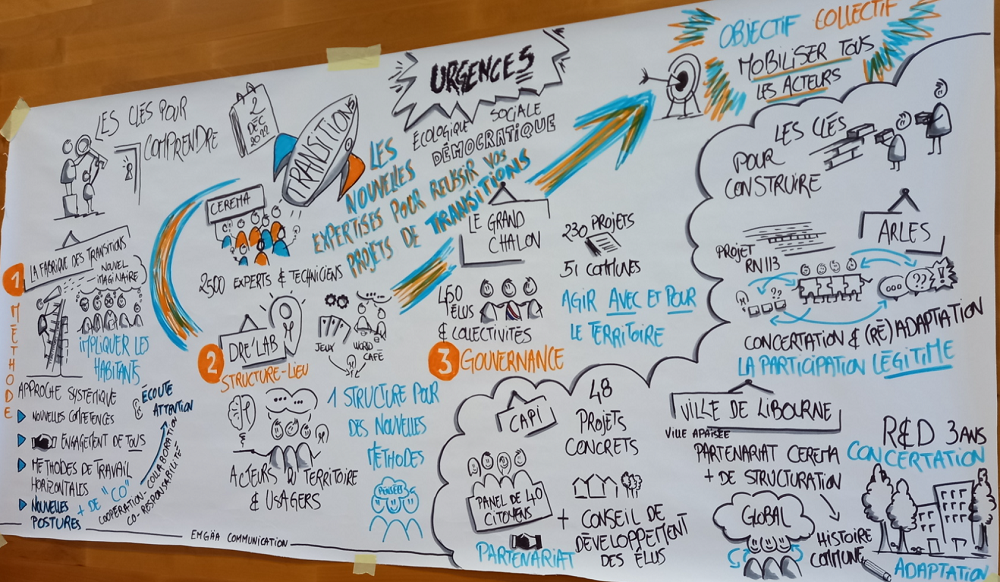 LES CLÉS POUR
COMPRENDRE
2
DÉC
2022
TRANSITION
URGENCES
ÉCOLOGIQUE
SOCIALE
DÉMOCRATIQUE
LES
NOUVELLES
EXPERTISES POUR REUSSIR VOS
PROJETS DE TRANSITIONS
OBJECTIF COLLECTIF
MOBILISER TOUS
LES ACTEURS
CEREMA
2500 EXPERTS & TECHNICIENS
1
MÉTHODE
LA FABRIQUE DES TRANSITIONS
NOUVEL
IMAGINAIRE
IMPLIQUER LES
HABITANTS
APPROCHE SYSTÉMIQUE
NOUVELLES COMPÉTENCES
ENGAGEMENT DE TOUS
MÉTHODES DE TRAVAIL
HORIZONTALES
NOUVELLES
POSTURES
+ DE "CO"
COOPÉRATION-COLLABORATION
CO-RESPONSABILITÉ
ÉCOUTE
ATTENTION
2
DRE'LAB
STRUCTURE-LIEU
JEUX
WORLD
CAFÉ
ACTEURS DU TERRITOIRE
& USAGERS
1 STRUCTURE POUR
DES NOUVELLES
MÉTHODES
PENSÉES
3
GOUVERNANCE
LE GRAND
CHALON
450
ÉLUS
& COLLECTIVITÉS
230 PROJETS
51 COMMUNES
AGIR AVEC ET POUR
LE TERRITOIRE
CAPI
PANEL DE 40
CITOYENS
PARTENARIAT
48
PROJETS
CONCRETS
+ CONSEIL DE
DÉVELOPPEMENT
DES ÉLUS
LES CLÉS
POUR
CONSTRUIRE
ARLES
PROJET
RN113
???
CONCERTATION & (RÉ)ADAPTATION
LA PARTICIPATION LÉGITIME
VILLE DE LIBOURNE
VILLE APAISÉE
PARTENARIAT CEREMA
+ DE STRUCTURATION
GLOBAL
HISTOIRE
COMMUNE
R&D 3 ANS
CONCERTATION
ADAPTATION
EMGÄA COMMUNICATION